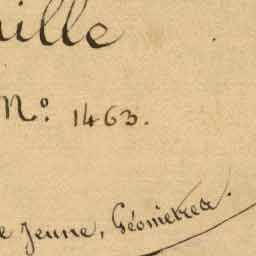 ille
N.° 1463.
e Jeune, Géometre.